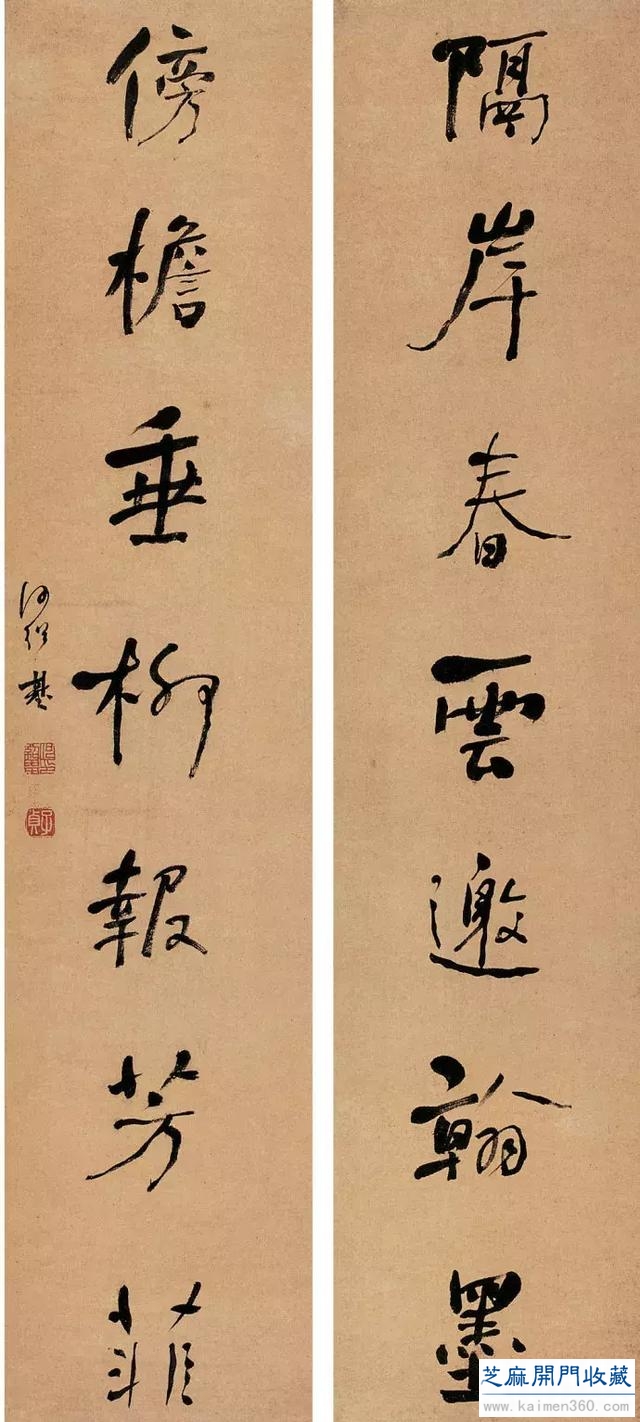 隔岸春雲邀翰墨
傍檐垂柳報芳菲
何紹基
子貞
芝麻開門收藏
www.kaimen360.com